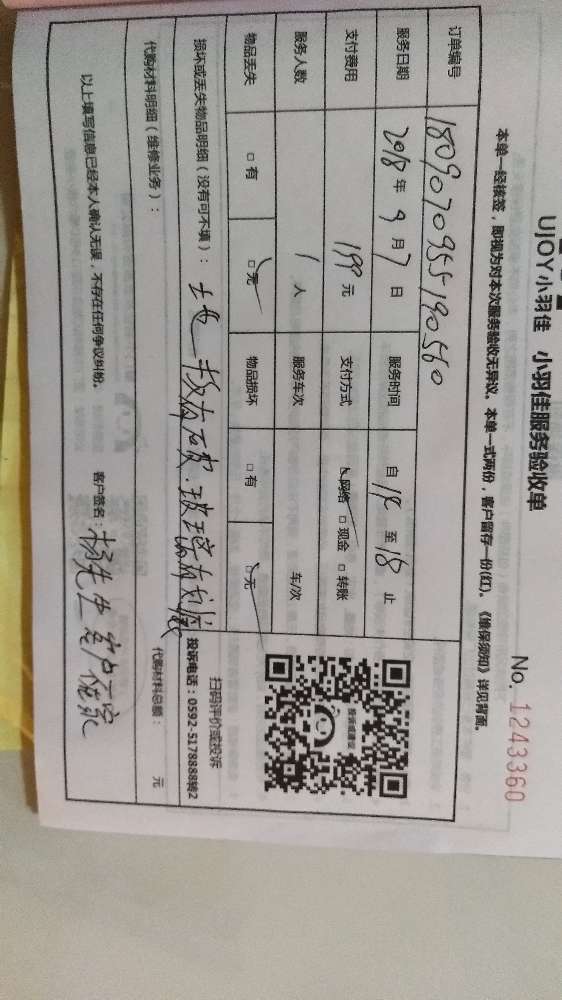 UJOY小羽佳 小羽佳服务验收单
No. 1243360
本单一经核签，即视为对本次服务验收无异议。本单一式两份，客户留存一份(红)。《维保须知》详见背面。
订单编号 1809070955190560
服务日期 2018年9月7日 服务时间 自 至18止
支付费用 199元 支付方式 网络 □现金 □转账
服务人数 1人 服务车次 车/次
物品丢失 □有 □无 物品损坏 □有 □无
扫码评价或投诉
投诉电话：0592-5178888转2
损坏或丢失物品明细（没有可不填）： 地板有破.玻璃有划痕
代购材料明细（维修业务）： 代购材料总额： 元
以上填写信息已经本人确认无误，不存在任何争议纠纷。 客户签名：杨先生 客户